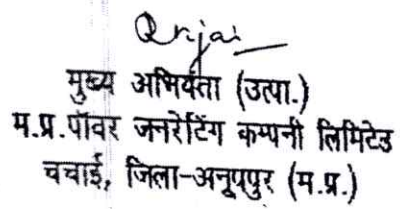 मुख्य अभियंता (उत्पा.)
म.प्र.पॉवर जनरेटिंग कम्पनी लिमिटेड
चचाई, जिला-अनूपपुर (म.प्र.)